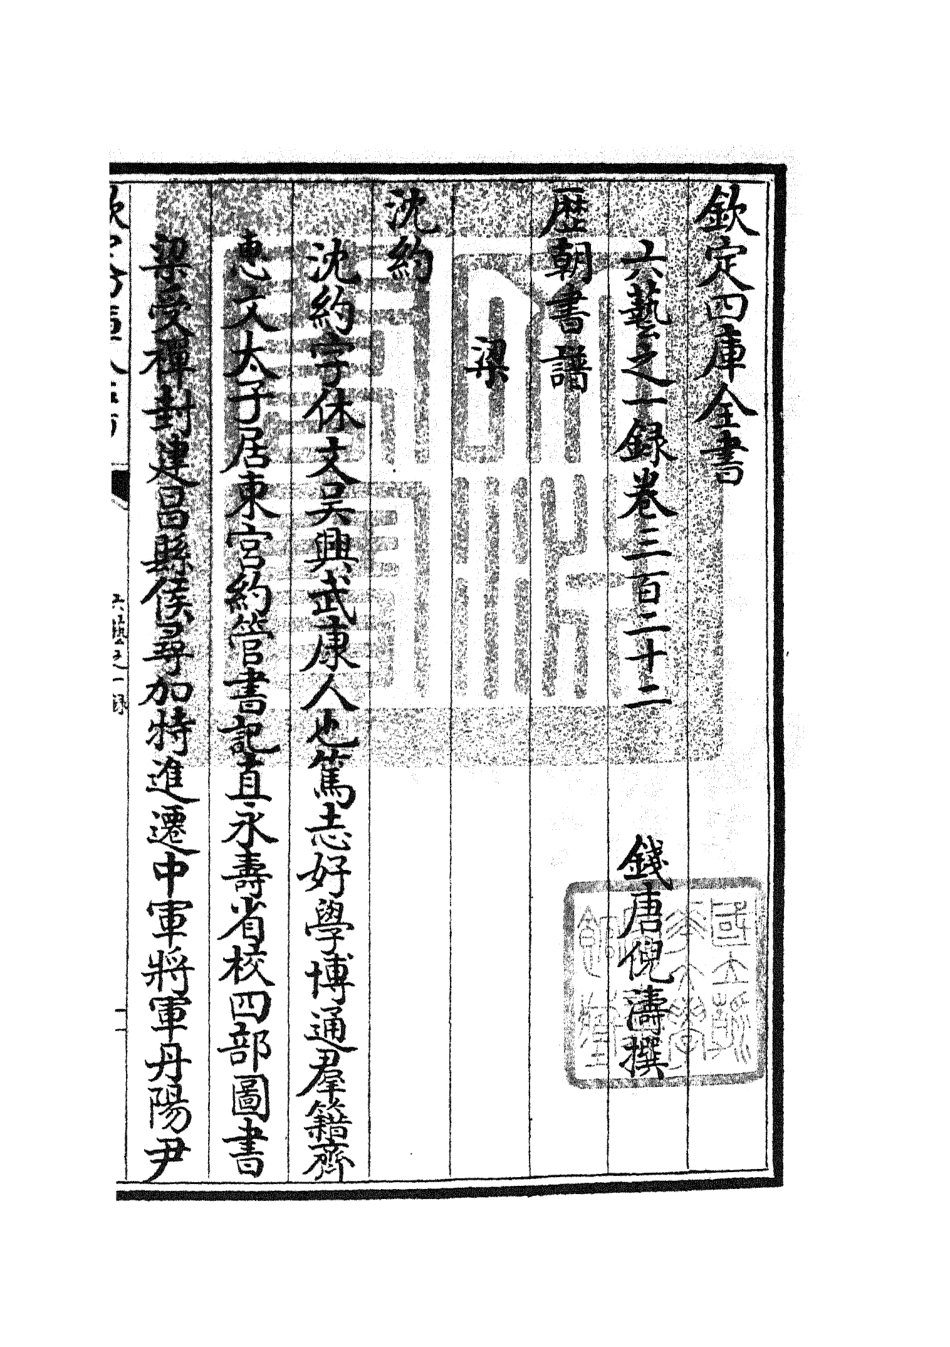 欽定四庫全書
六藝之一録卷三百二十二
錢唐倪濤撰
歴朝書譜
梁
沈約
沈約字休文吴興武康人也篤志好學博通羣籍齊
惠文太子居東宫約管書記直永壽省校四部圖書
梁受禪封建昌縣侯尋加特進遷中軍將軍丹陽尹
六藝之一録